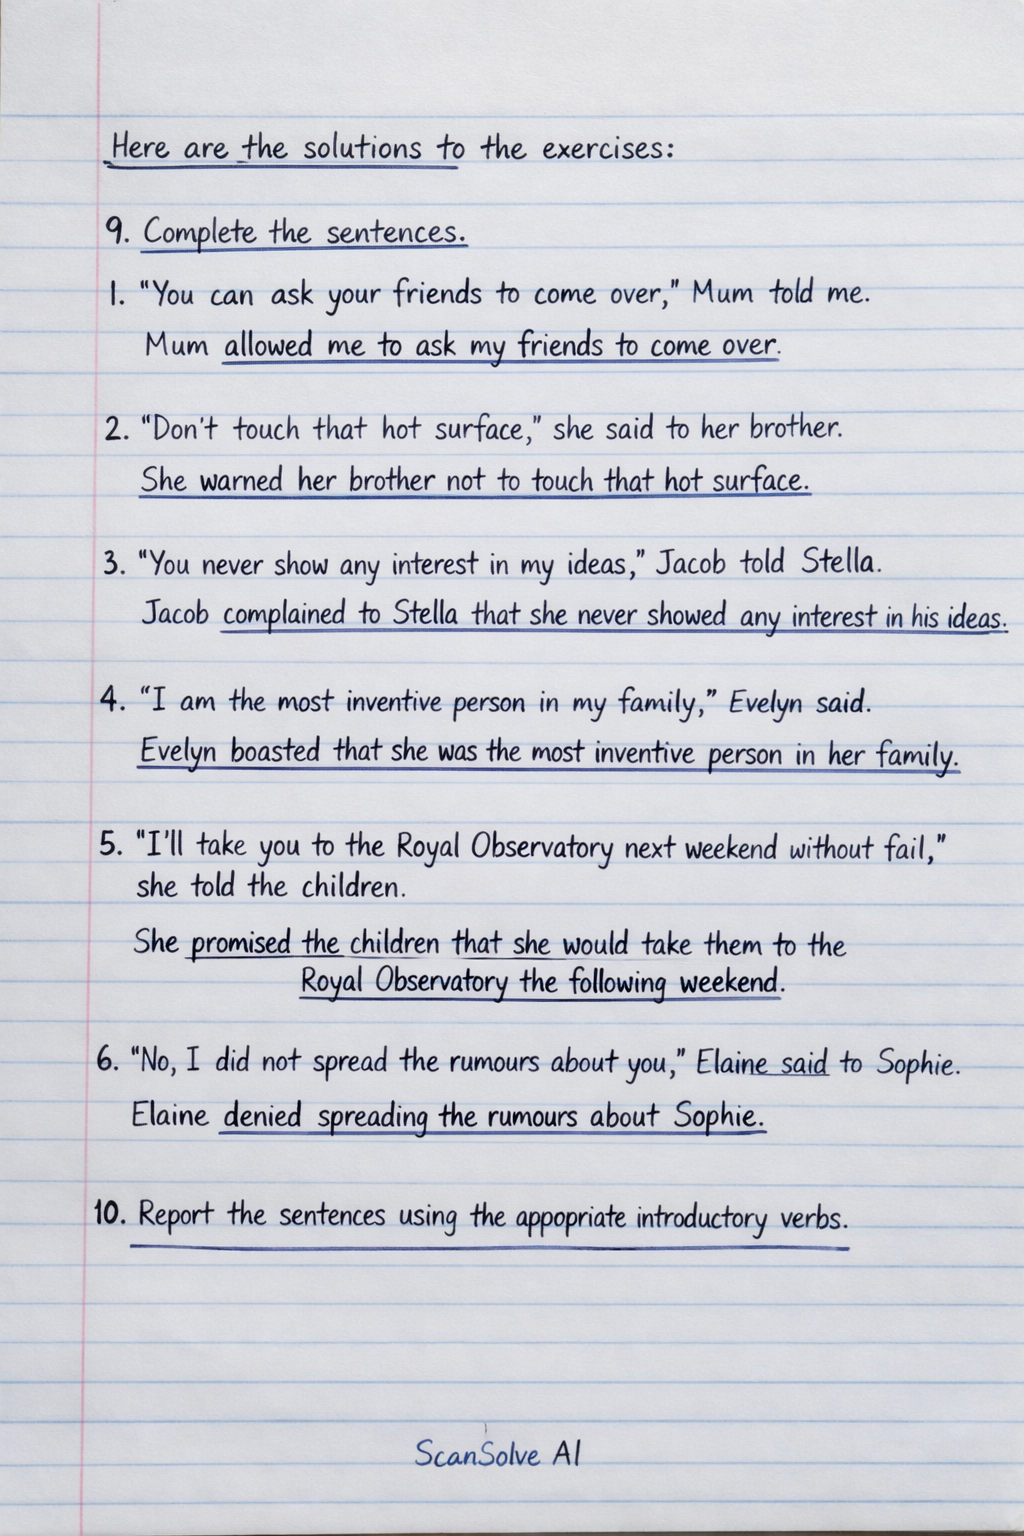 Here are the solutions to the exercises:
9. Complete the sentences.
1. "You can ask your friends to come over," Mum told me.
Mum allowed me to ask my friends to come over.
2. "Don't touch that hot surface," she said to her brother.
She warned her brother not to touch that hot surface.
3. "You never show any interest in my ideas," Jacob told Stella.
Jacob complained to Stella that she never showed any interest in his ideas.
4. "I am the most inventive person in my family," Evelyn said.
Evelyn boasted that she was the most inventive person in her family.
5. "I'll take you to the Royal Observatory next weekend without fail,"
she told the children.
She promised the children that she would take them to the
Royal Observatory the following weekend.
6. "No, I did not spread the rumours about you," Elaine said to Sophie.
Elaine denied spreading the rumours about Sophie.
10. Report the sentences using the appopriate introductory verbs.
ScanSolve AI